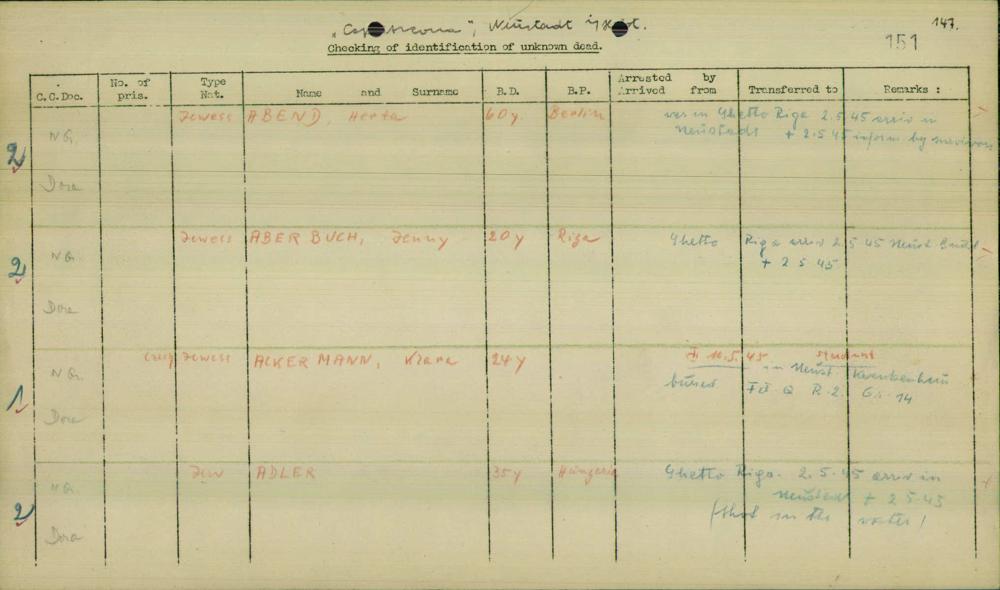 "Cap Arcona", Neustadt i/Holst. 147.
Checking of identification of unknown dead. 151
C.C.Doc. No. of pris. Type Nat. Name and Surname B.D. B.P. Arrested by Arrived from Transferred to Remarks :
NG. Jewess ABEND, Herta 60y. Berlin was in Ghetto Riga 2.5.45 arriv in
2 Neustadt + 2.5.45 inform by survivors
Dora
NG. Jewess ABERBUCH, Jenny 20y Riga Ghetto Riga arriv 2.5.45 Neust
2 + 2 5 45
Dora
Jewess ACKERMANN, Klara 24y 10.5.45 student
NG. in Neust. Krankenhaus
1 buried Fd. Q R.2. G. 14
Dora
Jew ADLER 35y Hungaria Ghetto Riga. 2.5.45 arriv in
NG. Neustadt + 2 5.45
2 (shot in the water)
Dora